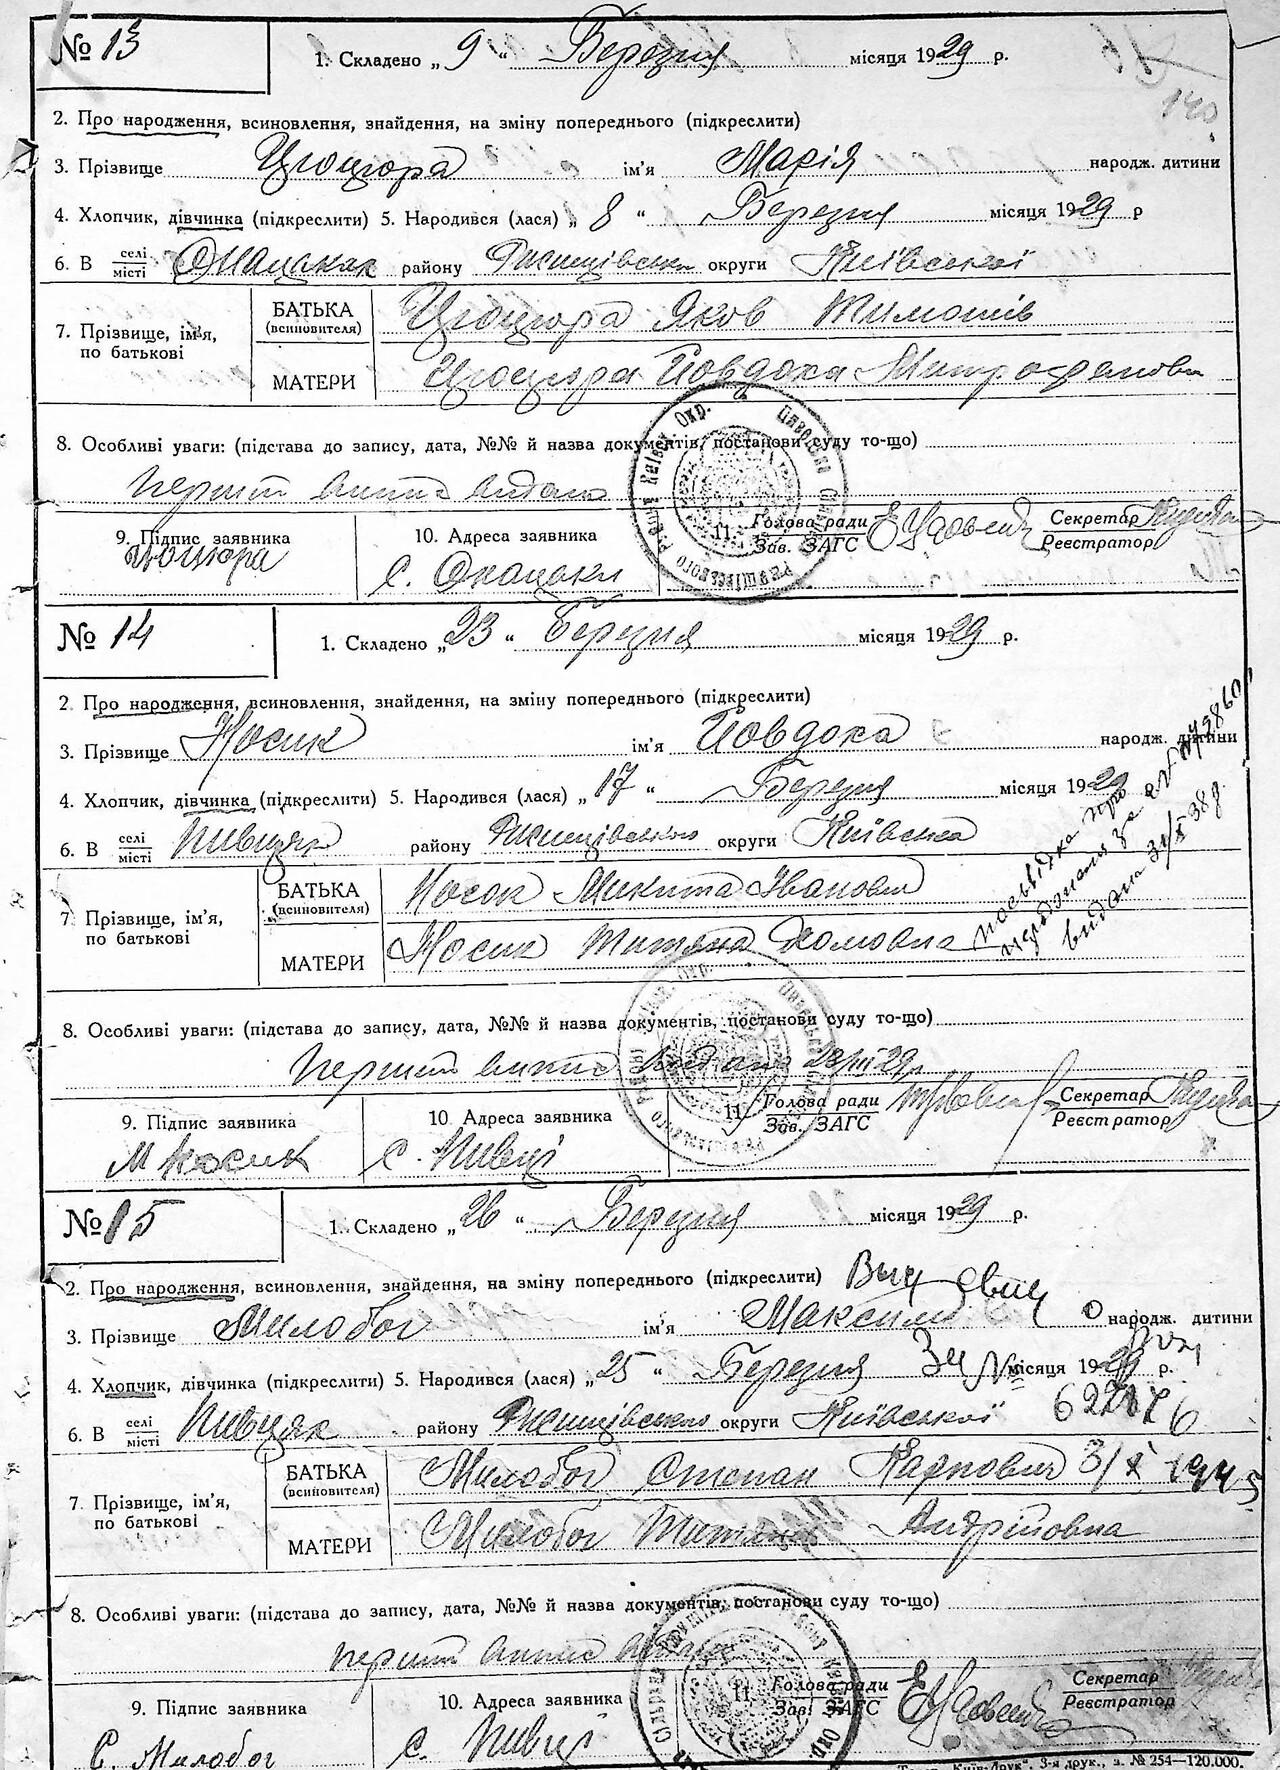 № 13
1. Складено „ 9 “ Березня місяця 1929 р.
140
2. Про народження, всиновлення, знайдення, на зміну попереднього (підкреслити)
3. Прізвище Цюцюра ім'я Марія народж. дитини
4. Хлопчик, дівчинка (підкреслити) 5. Народився (лася) „ 8 “ Березня місяця 1929 р
6. В селі/місті Онацьках району Ржищівськ округи Київської
7. Прізвище, ім'я, по батькові
БАТЬКА (всиновителя) Цюцюра Яков Тимошів
МАТЕРИ Цюцюра Йовдоха Митрофанова
8. Особливі уваги: (підстава до запису, дата, №№ й назва документів, постанови суду то-що)
перший випис видано
9. Підпис заявника Цюцюра
10. Адреса заявника с. Онацьки
11. Голова ради / Зав. ЗАГС
Секретар / Реєстратор
№ 14
1. Складено „ 23 “ Березня місяця 1929 р.
2. Про народження, всиновлення, знайдення, на зміну попереднього (підкреслити)
3. Прізвище Носик ім'я Йовдоха народж. дитини
4. Хлопчик, дівчинка (підкреслити) 5. Народився (лася) „ 17 “ Березня місяця 1929
6. В селі/місті Пивцях району Ржищівського округи Київська
7 Прізвище, ім'я, по батькові
БАТЬКА (всиновителя) Носок Микита Іванович
МАТЕРИ Носик Титяна Хомовна
посвідка про
народження за №
видана 31/X 38 р.
8. Особливі уваги: (підстава до запису, дата, №№ й назва документів, постанови суду то-що)
перший випис видано 23/III 29 р
9. Підпис заявника М Носик
10. Адреса заявника с. Пивці
11. Голова ради / Зав. ЗАГС
Секретар / Реєстратор
№ 15
1. Складено „ 26 “ Березня місяця 1929 р.
2. Про народження, всиновлення, знайдення, на зміну попереднього (підкреслити)
3. Прізвище Милобог ім'я Максим народж. дитини
4. Хлопчик, дівчинка (підкреслити) 5. Народився (лася) „ 25 “ Березня місяця 1929 р.
За №
6. В селі/місті Пивцях району Ржищівського округи Київської
7. Прізвище, ім'я, по батькові
БАТЬКА (всиновителя) Милобог Степан Карпович 3/X 1945
МАТЕРИ Милобог Титяна Андрійовна
8. Особливі уваги: (підстава до запису, дата, №№ й назва документів, постанови суду то-що)
перший випис видано
9. Підпис заявника С. Милобог
10. Адреса заявника с. Пивці
11. Голова ради / Зав. ЗАГС
Секретар / Реєстратор
„Київ-Друк“, 3-я друк., з. № 254—120.000.